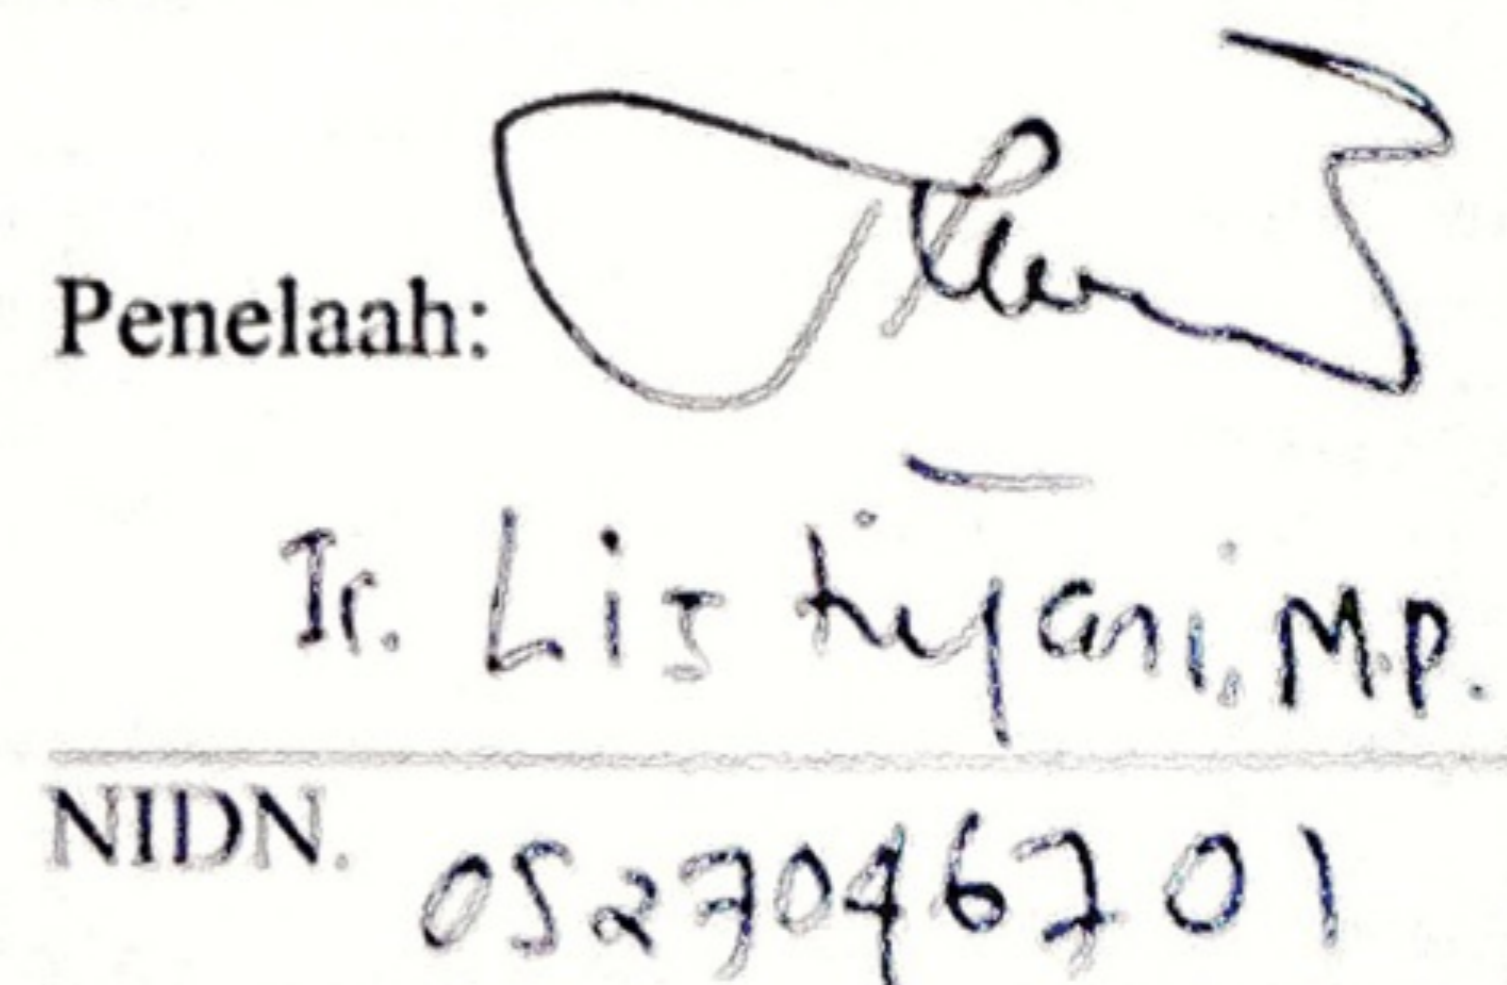 Penelaah:
Ir. Listiyani, M.P.
NIDN. 0527046701